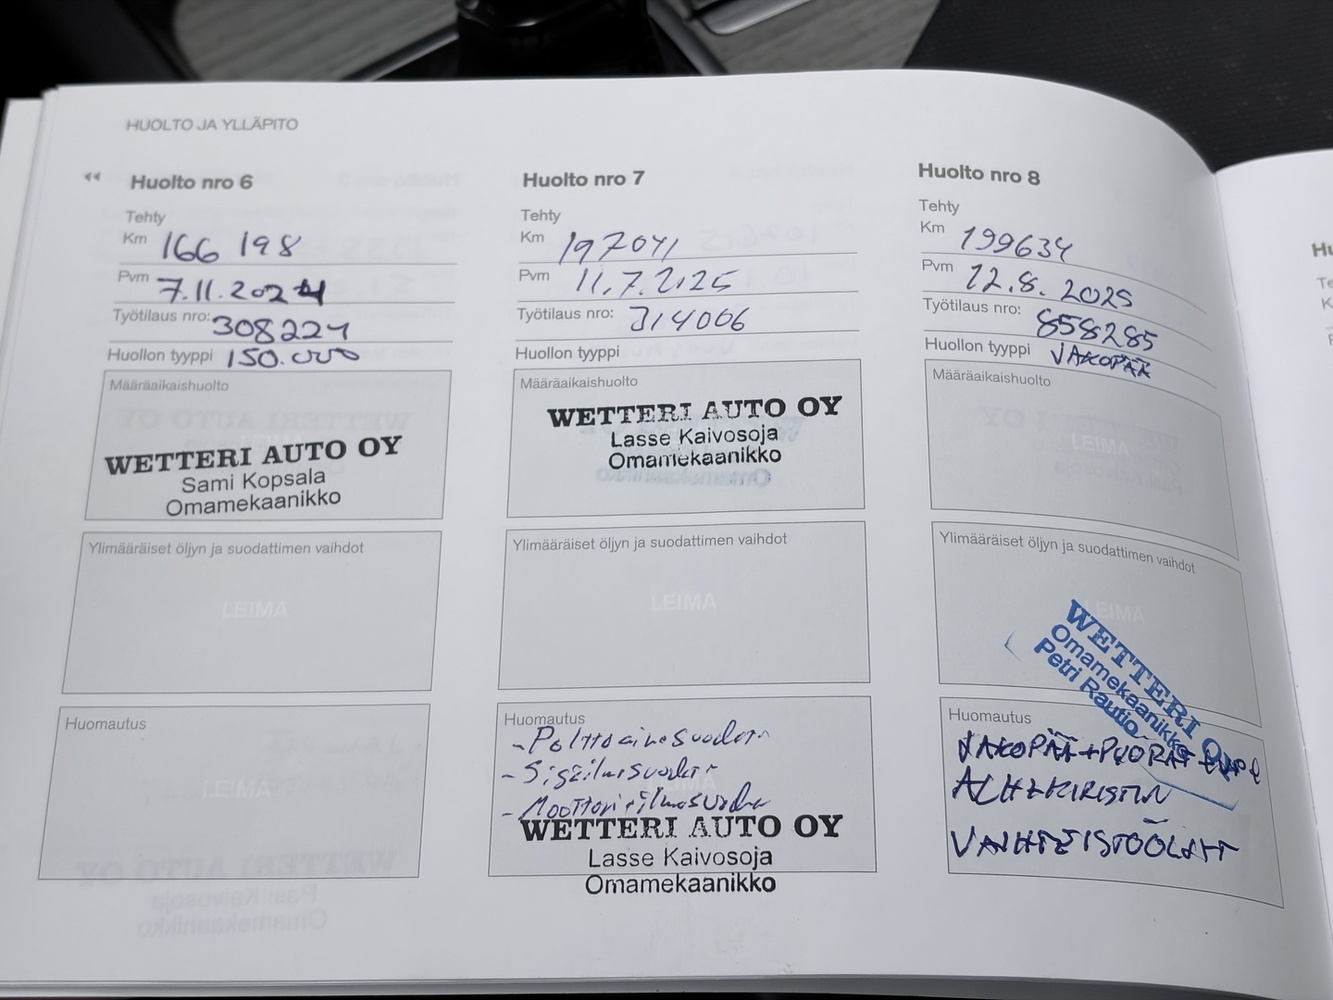 HUOLTO JA YLLÄPITO
Huolto nro 6
Tehty
Km 166 198
Pvm 7.11.2024
Työtilaus nro: 308224
Huollon tyyppi 150.000
Määräaikaishuolto
WETTERI AUTO OY
Sami Kopsala
Omamekaanikko
Ylimääräiset öljyn ja suodattimen vaihdot
LEIMA
Huomautus
LEIMA
Huolto nro 7
Tehty
Km 197041
Pvm 11.7.2025
Työtilaus nro: 314006
Huollon tyyppi
Määräaikaishuolto
WETTERI AUTO OY
Lasse Kaivosoja
Omamekaanikko
Ylimääräiset öljyn ja suodattimen vaihdot
LEIMA
Huomautus
- Polttoainesuodatin
- Sisäilmasuodatin
- Moottorinilmasuodatin
WETTERI AUTO OY
Lasse Kaivosoja
Omamekaanikko
Huolto nro 8
Tehty
Km 199634
Pvm 12.8. 2025
Työtilaus nro: 858285
Huollon tyyppi JAKOPÄÄ
Määräaikaishuolto
LEIMA
Ylimääräiset öljyn ja suodattimen vaihdot
LEIMA
WETTERI OY
Omamekaanikko
Petri Rautio
Huomautus
JAKOPÄÄ+
VAIHTEISTOÖLJYT